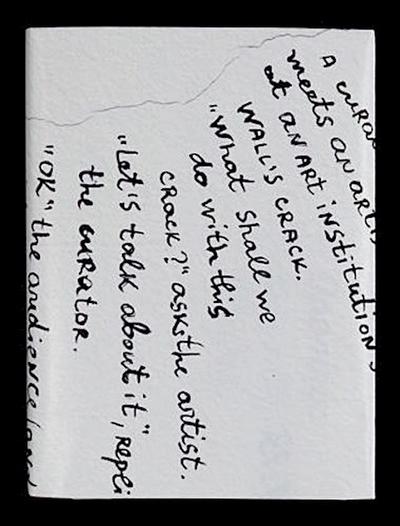 A curat
meets an artis
at an art institution's
wall's crack.
"What shall we
do with this
crack?" asks the artist.
"Let's talk about it", repli
the curator.
"OK" the audience